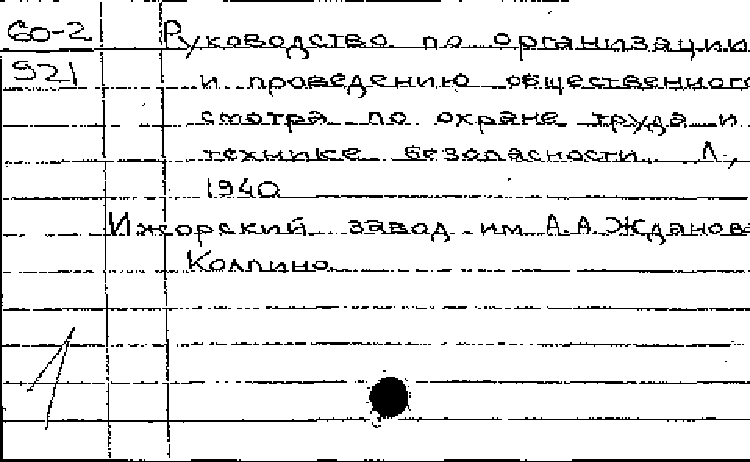 60-2 Руководство по организации
921 и проведению общественного
смотра по охране труда и
технике безопасности. Л.,
1940
Ижорский завод им. А.А. Жданова
Колпино.